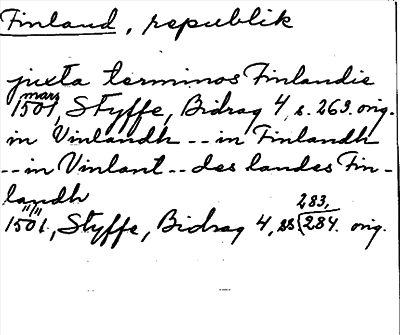 Finland, republik
juxta terminos Finlandie
mars
1501, Styffe, Bidrag 4, s. 269. orig.
in Vinlandh -- in Finlandh
-- in Vinlant -- des landes Fin-
landh
11/11 283,
1501, Styffe, Bidrag 4, ss 284. orig.